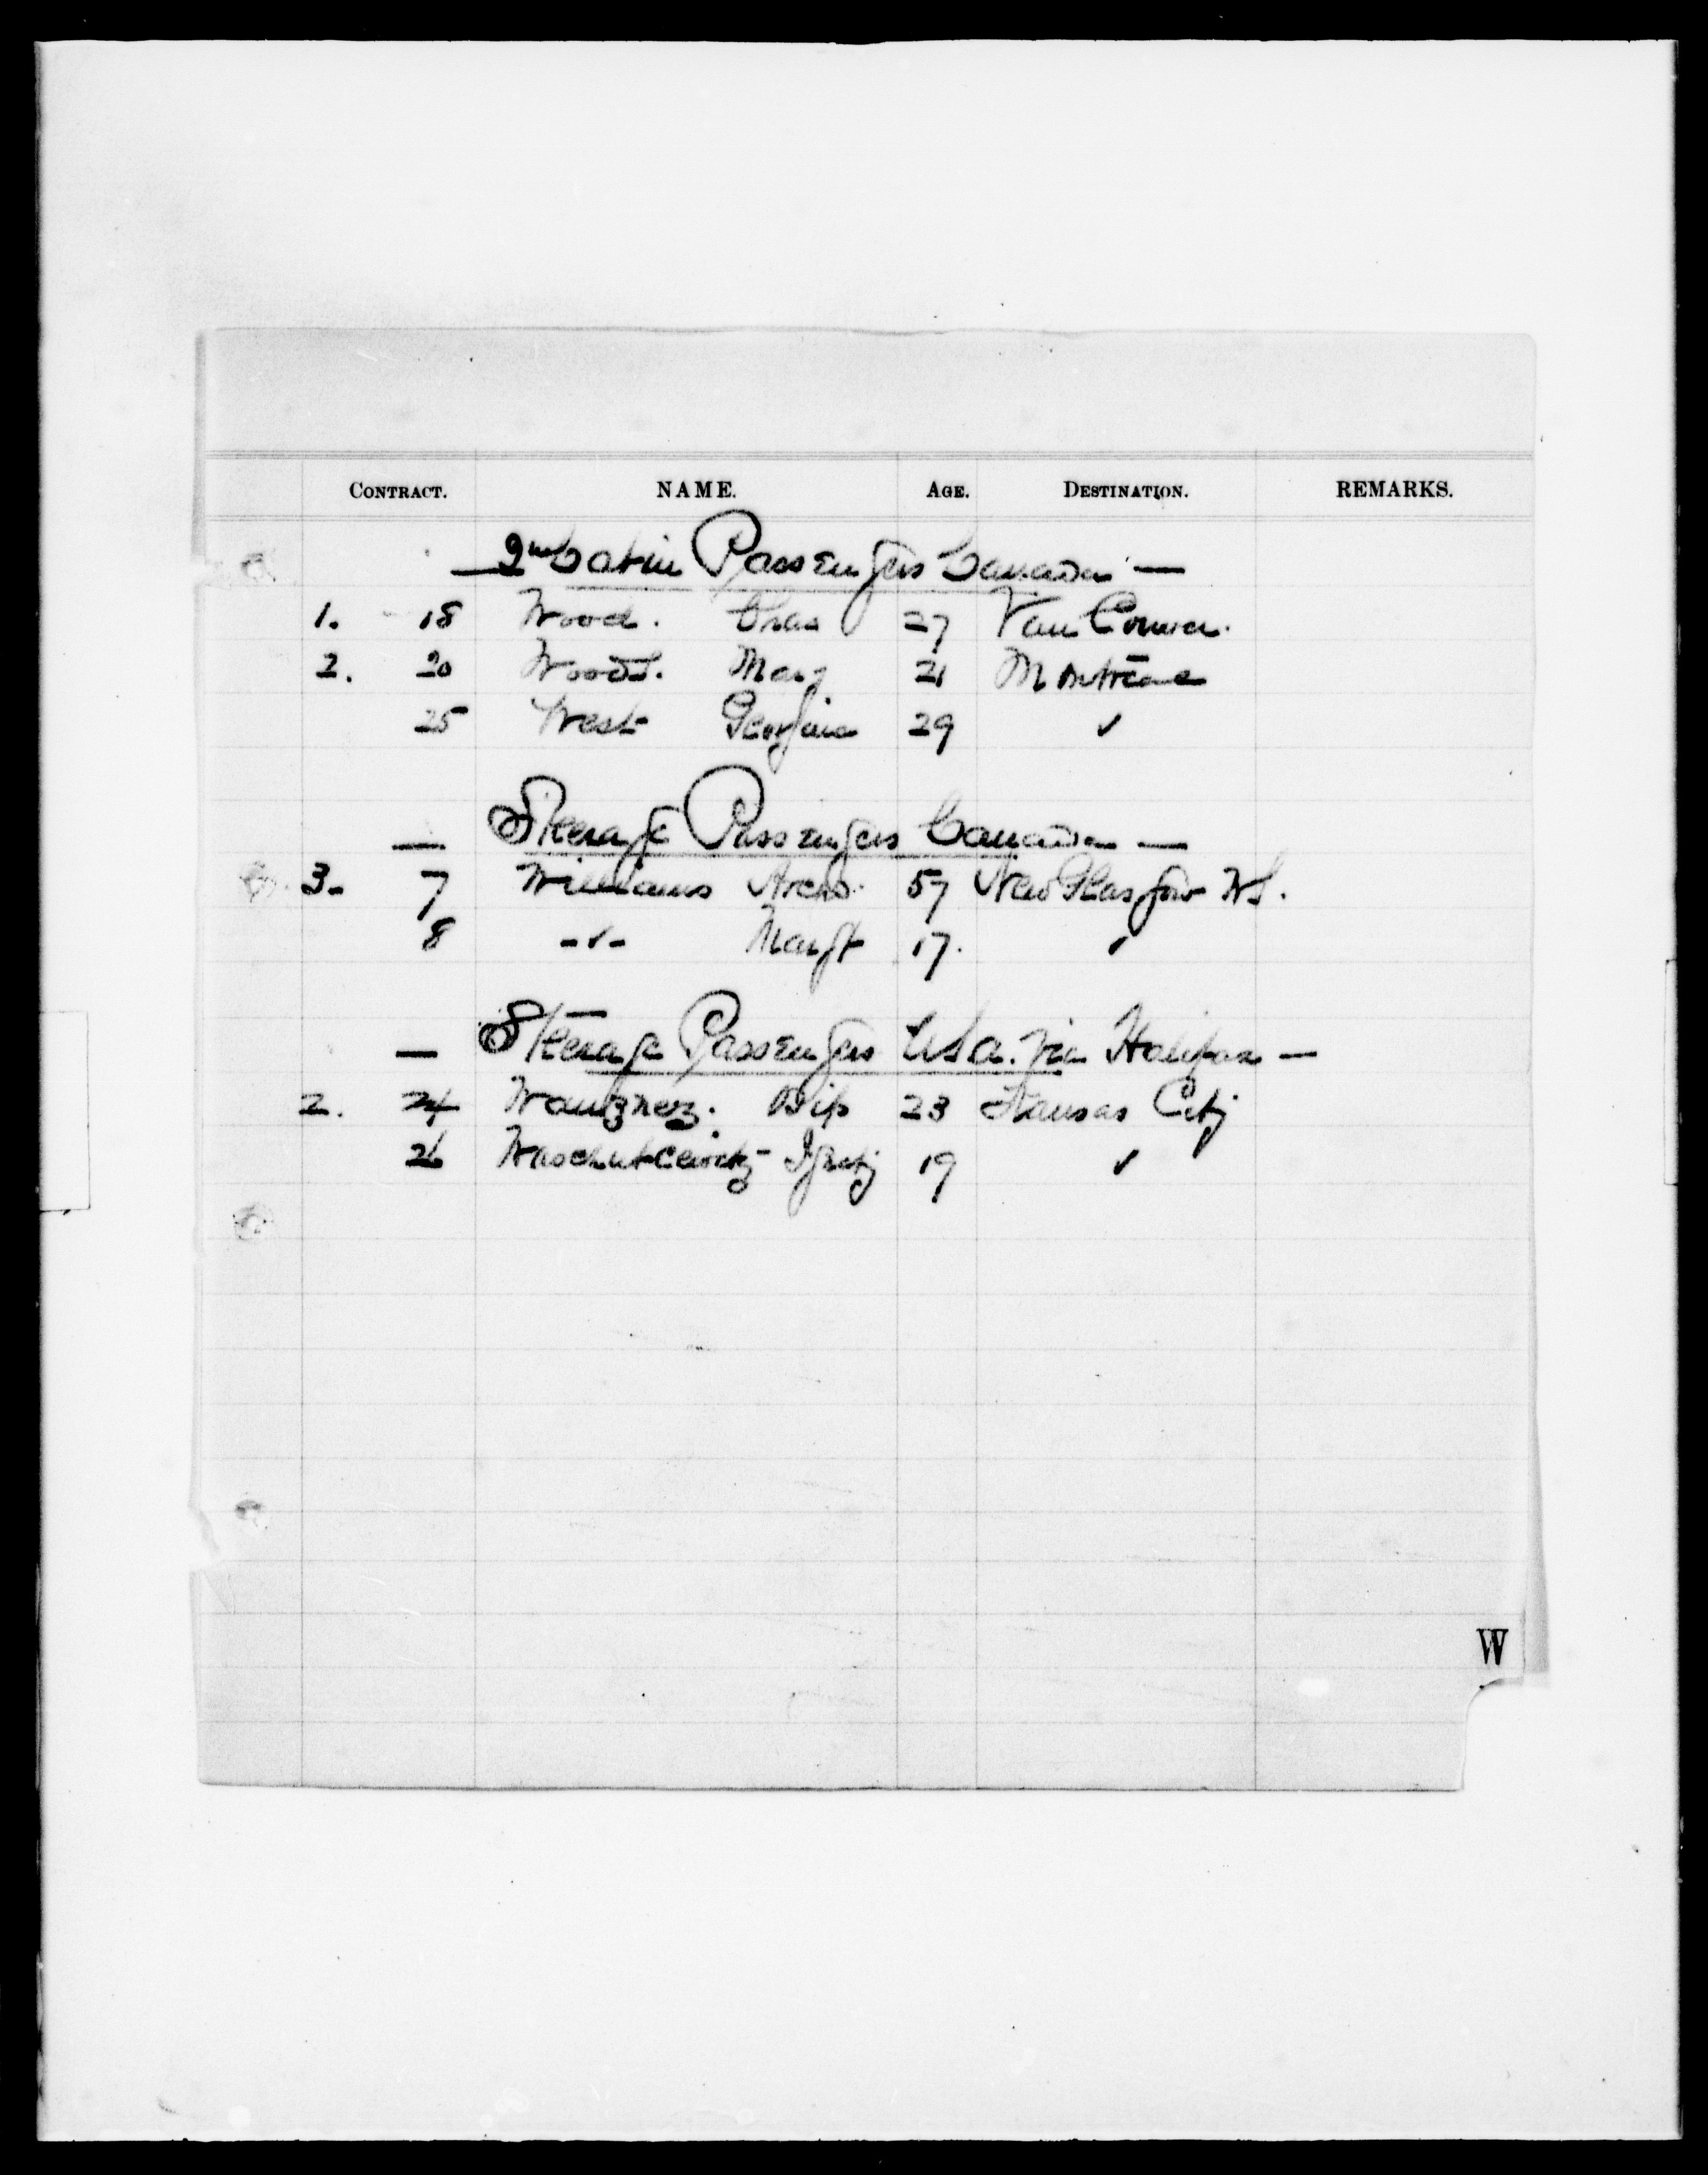 CONTRACT. NAME. AGE. DESTINATION. REMARKS.
— 2nd Cabin Passengers Canada —
1. 18 Wood. Chas 27 VanCouver.
2. 20 Wood Mary 21 Montreal
25 West Georgina 29 ✓
— Steerage Passengers Canada —
3- 7 Williams Archd. 57 New Glasgow NS.
8 -✓- Margt 17. ✓
— Steerage Passengers USA. via Halifax —
2. 24 23 Kansas City
26 19 ✓
W